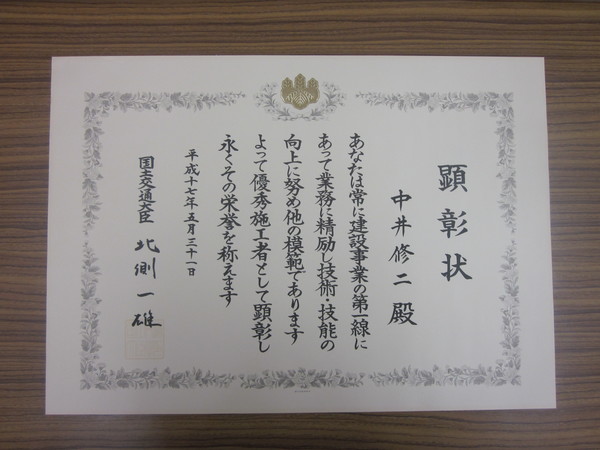 顕彰状
中井修二殿
あなたは常に建設事業の第一線に
あって業務に精励し技術・技能の
向上に努め他の模範であります
よって優秀施工者として顕彰し
永くその栄誉を称えます
平成十七年五月三十一日
国土交通大臣 北側一雄